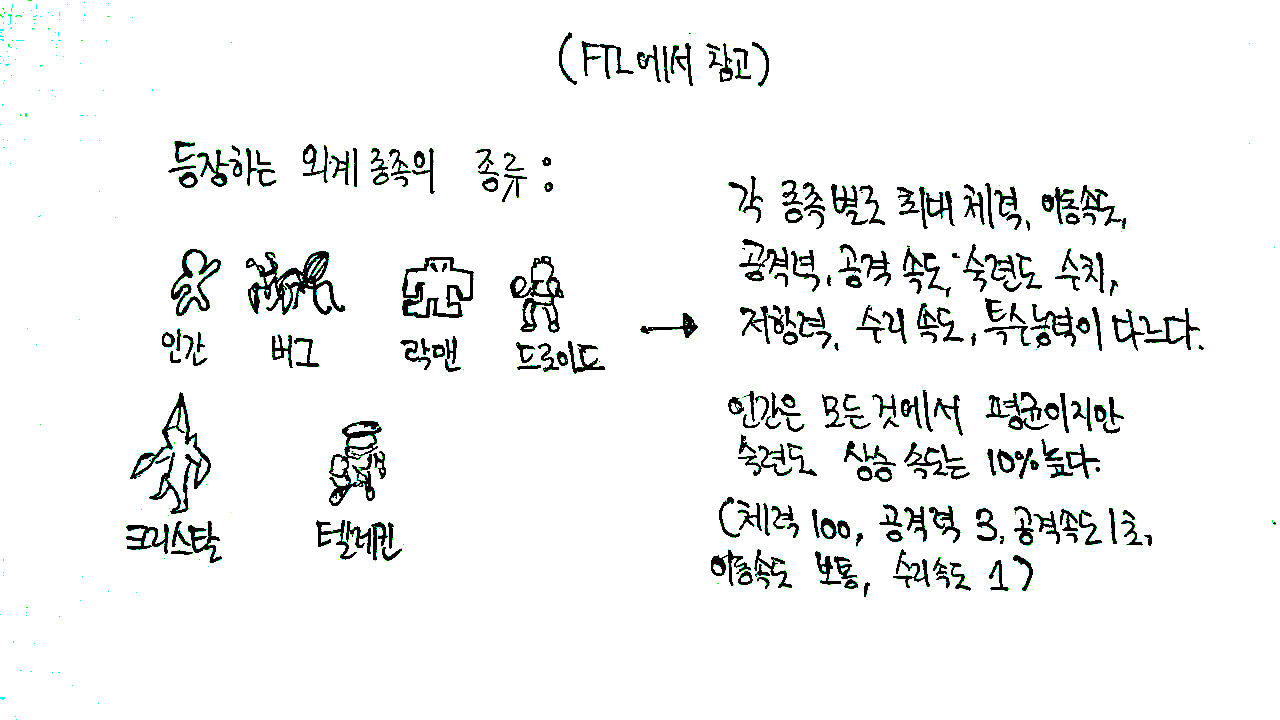 (FTL에서 참고)
등장하는 외계 종족의 종류 :
인간 버그 락맨 드로이드
크리스탈 텔레킨
각 종족 별로 최대 체력, 이동속도,
공격력, 공격 속도, 숙련도 수치,
저항력, 수리 속도, 특수능력이 다느다.
인간은 모든것에서 평균이지만
숙련도 상승 속도는 10% 높다.
(체력 100, 공격력 3, 공격속도 1초,
이동속도 보통, 수리속도 1)